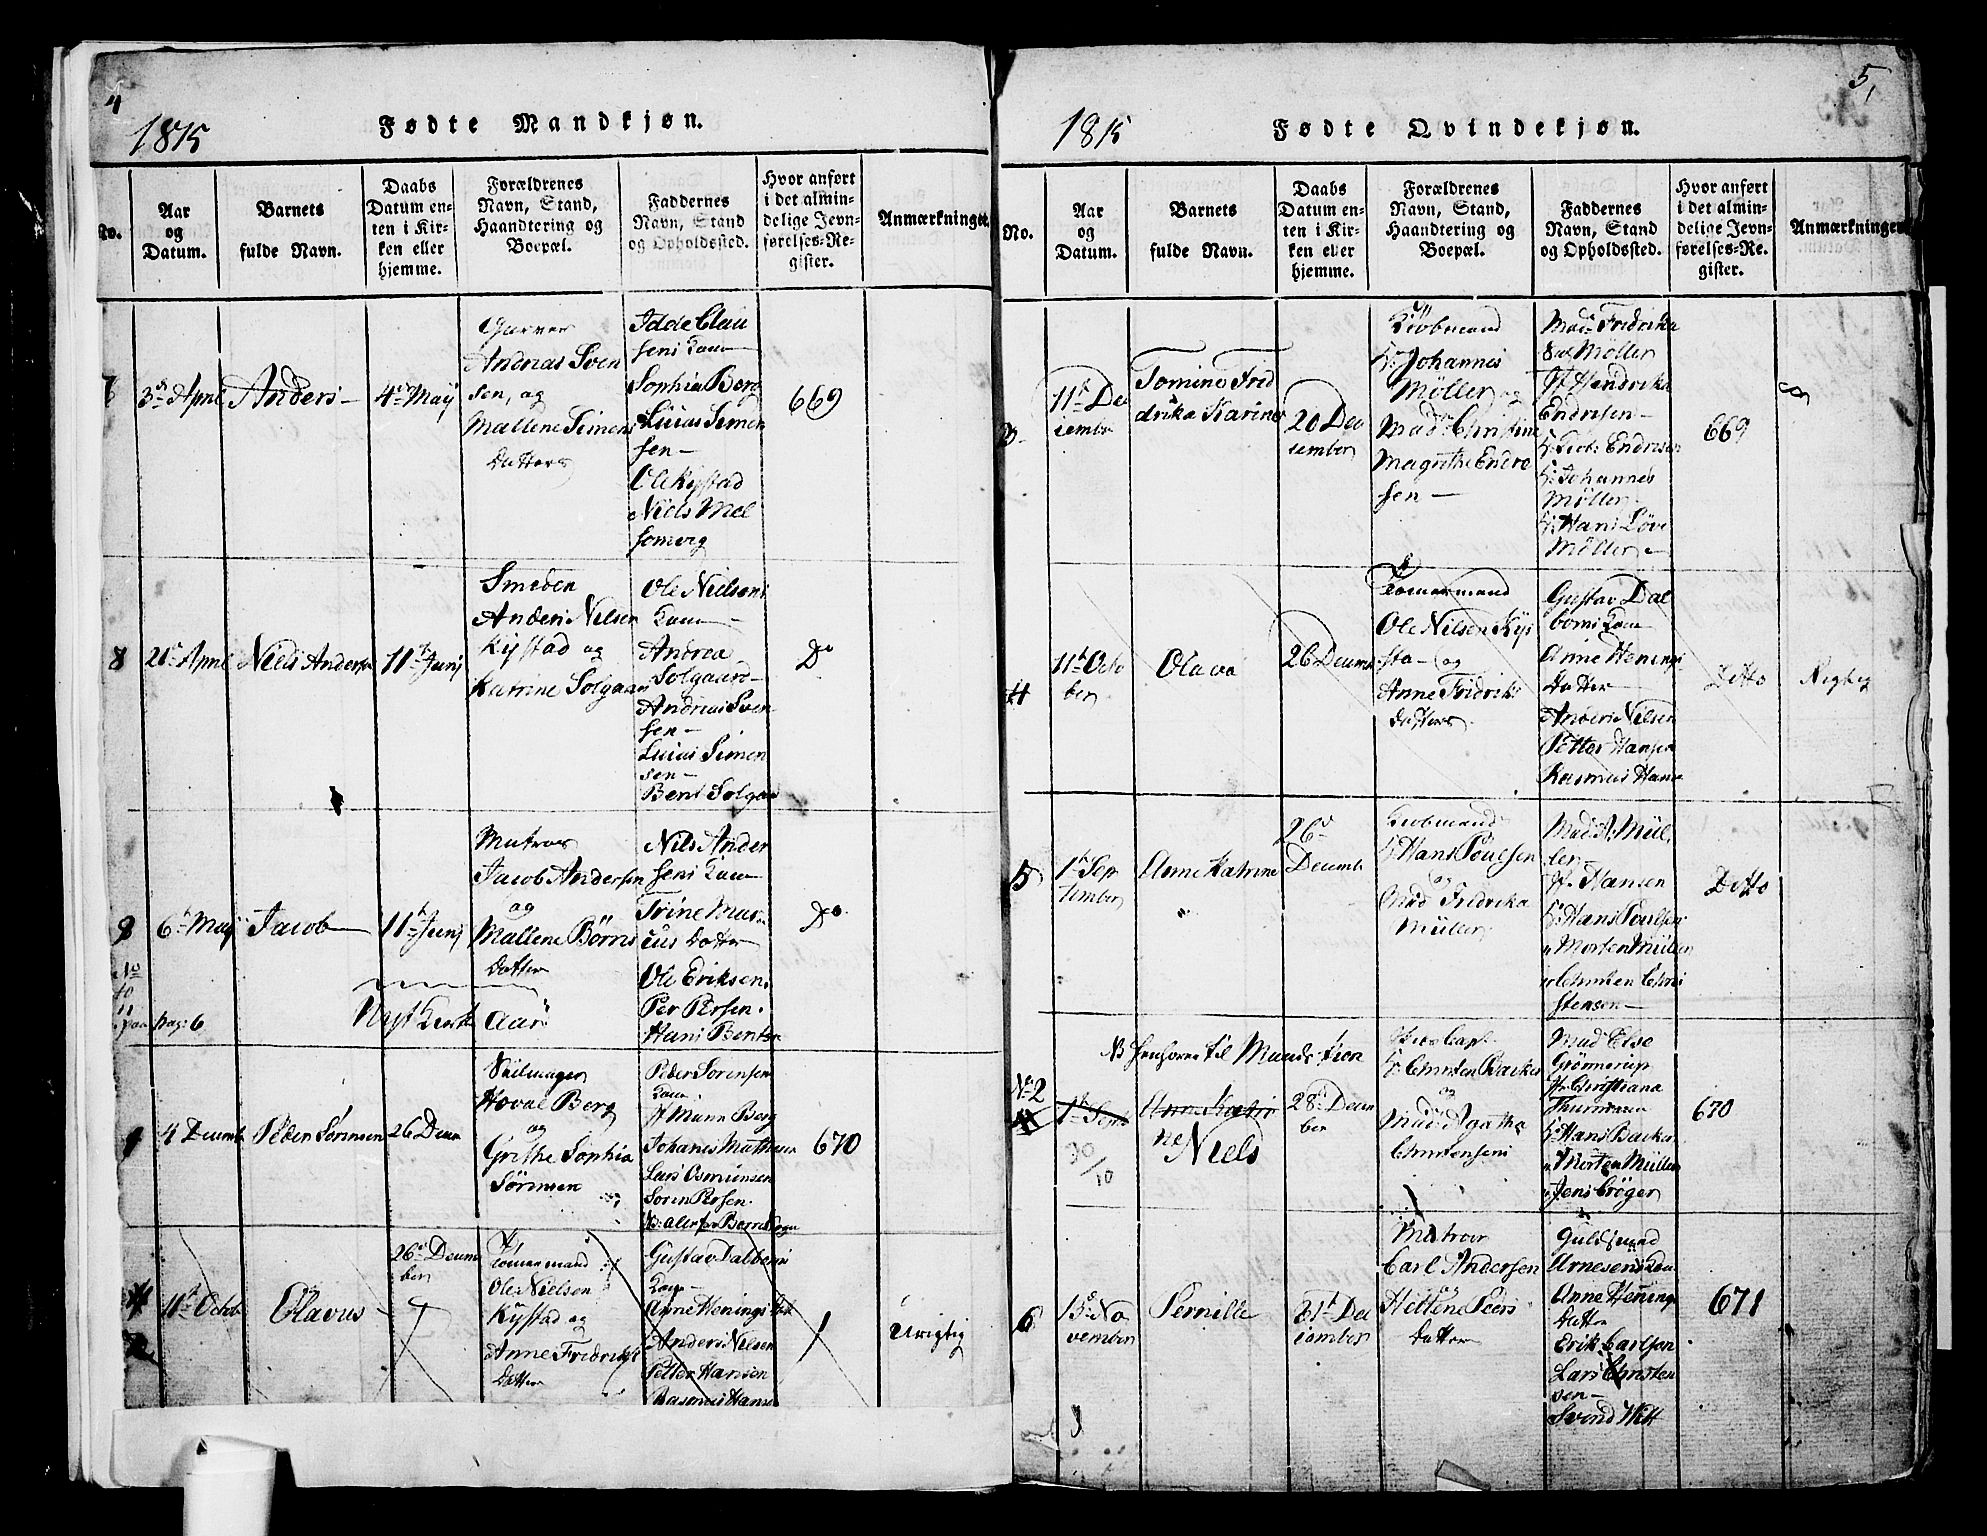 4
1815
Fødte Mandkjøn.
No.
Aar
og
Datum.
Barnets
fulde Navn.
Daabs
Datum en-
ten i Kir-
ken eller
hjemme.
Forældrenes
Navn, Stand,
Haandtering og
Boepæl.
Faddernes
Navn, Stand
og Opholdssted.
Hvor anført
i det almin-
delige Jevn-
førelses-Re-
gister.
Anmærkninger.
3de April
Anders
4de May
Garver
Andreas Sven
sen, og
Mallene Simens
Datter
Idde Clau
sens Kone
Sophia Berg
Lucas Simon
sen
Ole Kystad
Niels Mel
somvig
669
8
21de April
Niels Andersen
11te Junj
Smeden
Anders Nilsen
Kystad og
Katrine Solgaard
Ole Nielsens
Kone
Andrea
Solgaard
Andreas Sven
sen
Lucas Simon
sen
Bent Solgaard
Do
9
6te May
Jacob
11te Junj
Matros
Jacob Andersen
og
Mallene Börns
Datter
Nils Ander
sens Kone
Trine Mar
cus Datter
Ole Eriksen
Per Persen
Hans Bentsen
Do
No
10
11
paa pag: 6
Nyt Kirke Aar
4 Decemb
Peder Sörensen
26 Decem
Seilmager
Hoval Berg
og
Grethe Sophia
Sörensen
Peder Sorensen
Kone
Jf Münn Berg
Johanes Mathesen
Lars Osmunsen
Soren Persen
670
11te Octob
Olavus
26de Decem
ber
Tömermand
Ole Nielsen
Kystad og
Anne Fredriks
Datter
Gustav Dalboms
Kone
Anne Henings Dat
Anders Nilsen
Petter Hansen
Rasmus Hansen
Urigtig
5
1815
Fødte Qvindekjøn.
No.
Aar
og
Datum.
Barnets
fulde Navn.
Daabs
Datum en-
ten i Kir-
ken eller
hjemme.
Forældrenes
Navn, Stand,
Haandtering og
Boepæl.
Faddernes
Navn, Stand
og Opholdssted.
Hvor anført
i det almin-
delige Jevn-
førelses-Re-
gister.
Anmærkninger
3
11te De
cember
Tomine Frid
drika Karine
20 De
cember
Kiöbmand
Hr Johannes
Möller og
Mad Christine
Magrethe Endre
sen
Mad Fridrika
Möller
Jf Hendrika
Endresen
Hr Jacob Endresen
Hr Johannes
Möller
Hr Hans Löve
Möller
669
4
11te Octo
ber
Olava
26 Decemb
Tömermand
Ole Nilsen Kys
sta og
Anne Fridriks
datter
Gustav Dal
boms Kone
Anne Henings
Datter
Anders Nilsen
Petter Hansen
Rasmus Hansen
Ditto
Rigtig
5
1te Sep
tember
Anne Katrine
26de
Decemb
Kiöbmand
Hr Hans Poulsen
og
Mad Fridrika
Müller
Mad A: Mül
ler
Jf. Hansen
Hr Hans Poulsen
Morten Müller
Christen Chri
stensen
Ditto
NB henföres til Mandkiön
No 2
1te Sept
30/10
Anne Katri
ne
Niels
28de Decem
ber
Hr Christen Backer
og
Mad Agatha
Christensen
Mad Else
Grönnerup
Jf Christiana
Thurmann
Hr Hans Backer
Morten Müller
Jens Cröger
670
6
13de No
vember
Pernille
31te De
cember
Matros
Carl Andersen
Hellene Peers
Datter
Guldsmed
Arnesens Kone
Anne Hennings
Datter
Erik Carlsen
Lars Christen
sen
Svend Hill
671